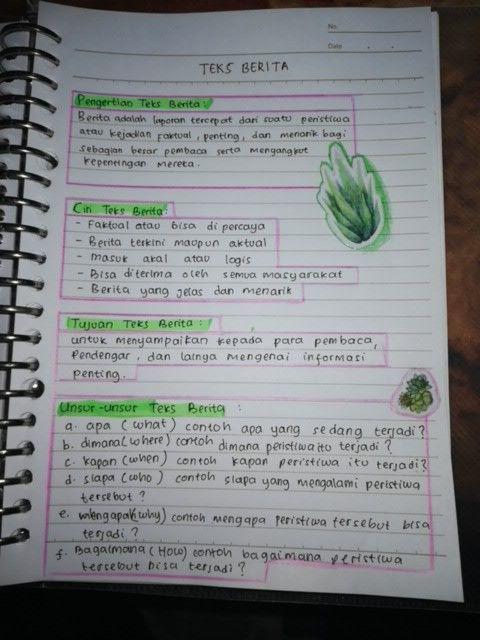 No.
Date
TEKS BERITA
Pengertian Teks Berita :
Berita adalah laporan tercepat dari suatu peristiwa
atau kejadian faktual, penting, dan menarik bagi
sebagian besar pembaca serta mengangkut
kepentingan mereka.
Ciri Teks Berita :
- Faktual atau bisa di percaya
- Berita terkini maupun aktual
- masuk akal atau logis
- Bisa diterima oleh semua masyarakat
- Berita yang jelas dan menarik
Tujuan Teks Berita :
untuk menyampaikan kepada para pembaca,
Pendengar, dan lainya mengenai informasi
penting.
Unsur-unsur Teks Berita :
a. apa (what) contoh apa yang sedang terjadi?
b. dimana (where) contoh dimana peristiwa itu terjadi?
c. kapan (when) contoh kapan peristiwa itu terjadi?
d. siapa (who) contoh siapa yang mengalami peristiwa
tersebut ?
e. mengapa (why) contoh mengapa peristiwa tersebut bisa
terjadi ?
f. Bagaimana (How) contoh bagaimana peristiwa
tersebut bisa terjadi ?